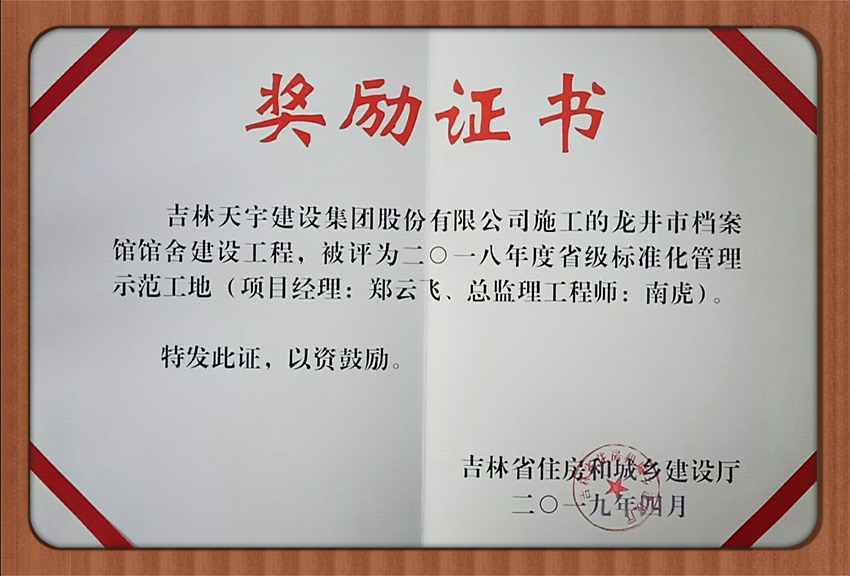 奖励证书
吉林天宇建设集团股份有限公司施工的龙井市档案
馆馆舍建设工程，被评为二〇一八年度省级标准化管理
示范工地（项目经理：郑云飞、总监理工程师：南虎）。
特发此证，以资鼓励。
吉林省住房和城乡建设厅
二〇一九年四月